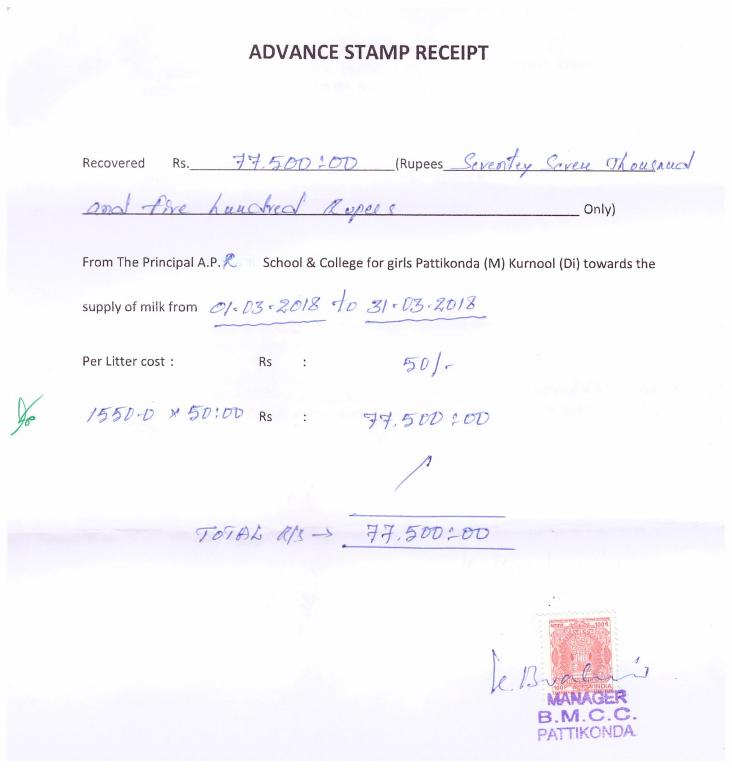 ADVANCE STAMP RECEIPT
Recovered Rs. 77.500:00 (Rupees Seventey Seven Thousand
and five hundred Rupees Only)
From The Principal A.P.R School & College for girls Pattikonda (M) Kurnool (Di) towards the
supply of milk from 01-03-2018 to 31-03-2018
Per Litter cost : Rs : 50/-
1550.0 × 50:00 Rs : 77.500:00
TOTAL R/s → 77.500:00
MANAGER
B.M.C.C.
PATTIKONDA.